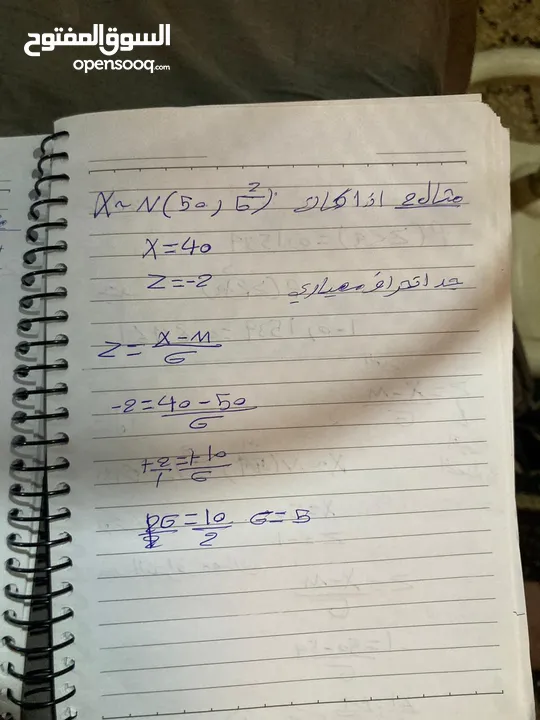 السوق المفتوح
opensooq.com
مثال 2 اذا كان X~N(50, σ²)
X=40
Z=-2 جد انحراف معياري
Z=X-M/σ
-2=40-50/σ
+2/1=+10/σ
2σ/2=10/2 σ=5